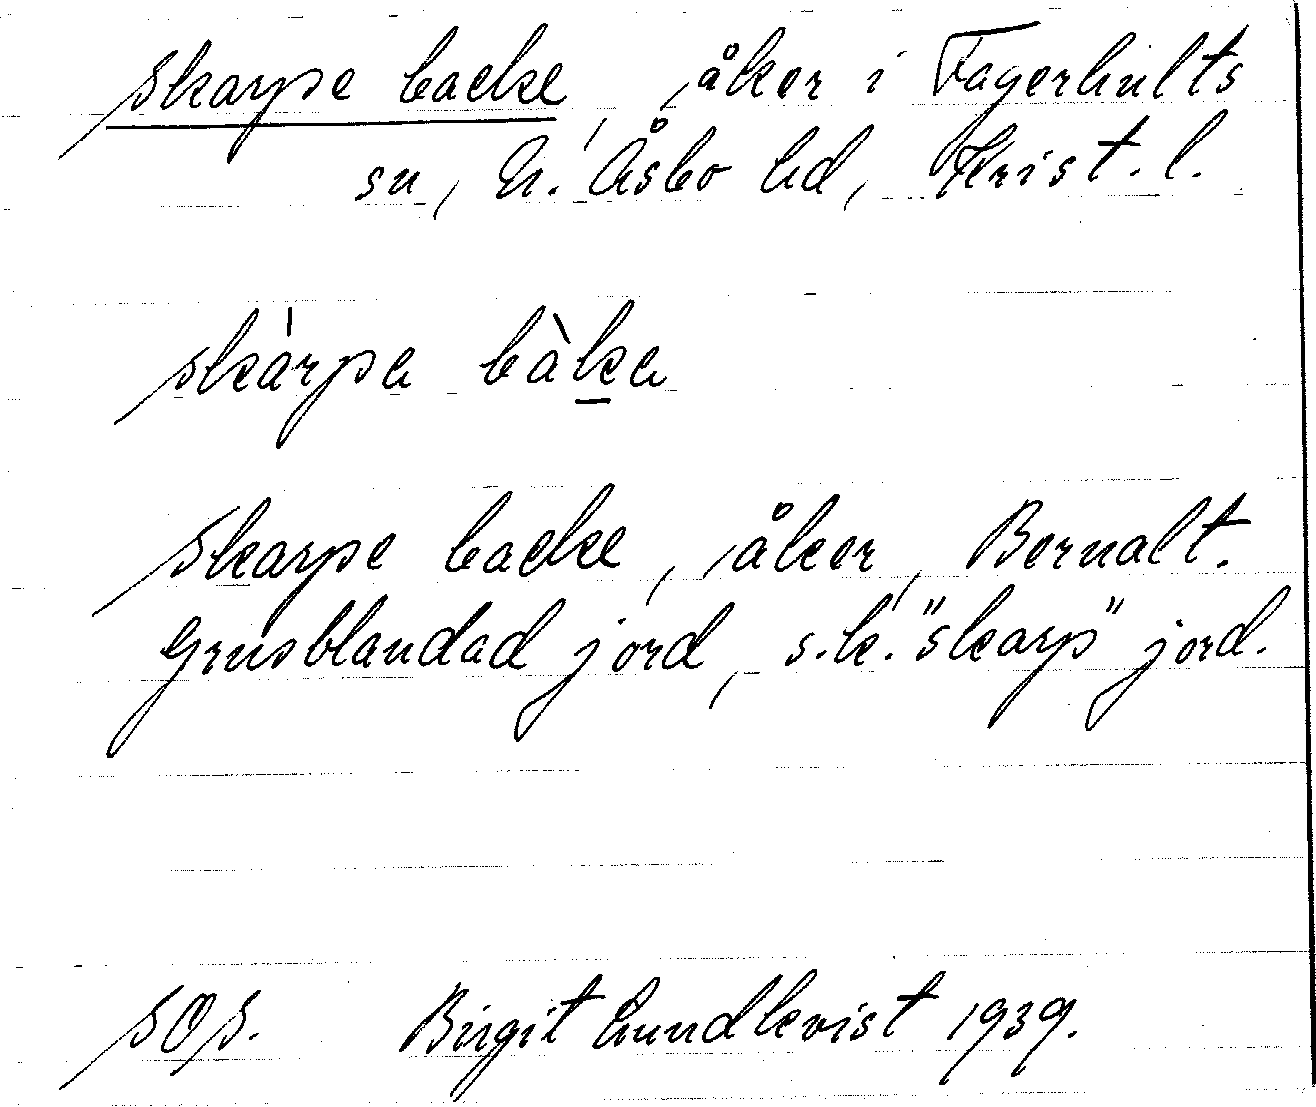 Skarpe backe, åker i Fagerhults
sn, N. Åsbo hd, Krist. l.
skàrpa bàka
Skarpe backe, åker, Bernalt.
Grusblandad jord, s.k. "skarp" jord.
SOS. Birgit Lundkvist 1939.